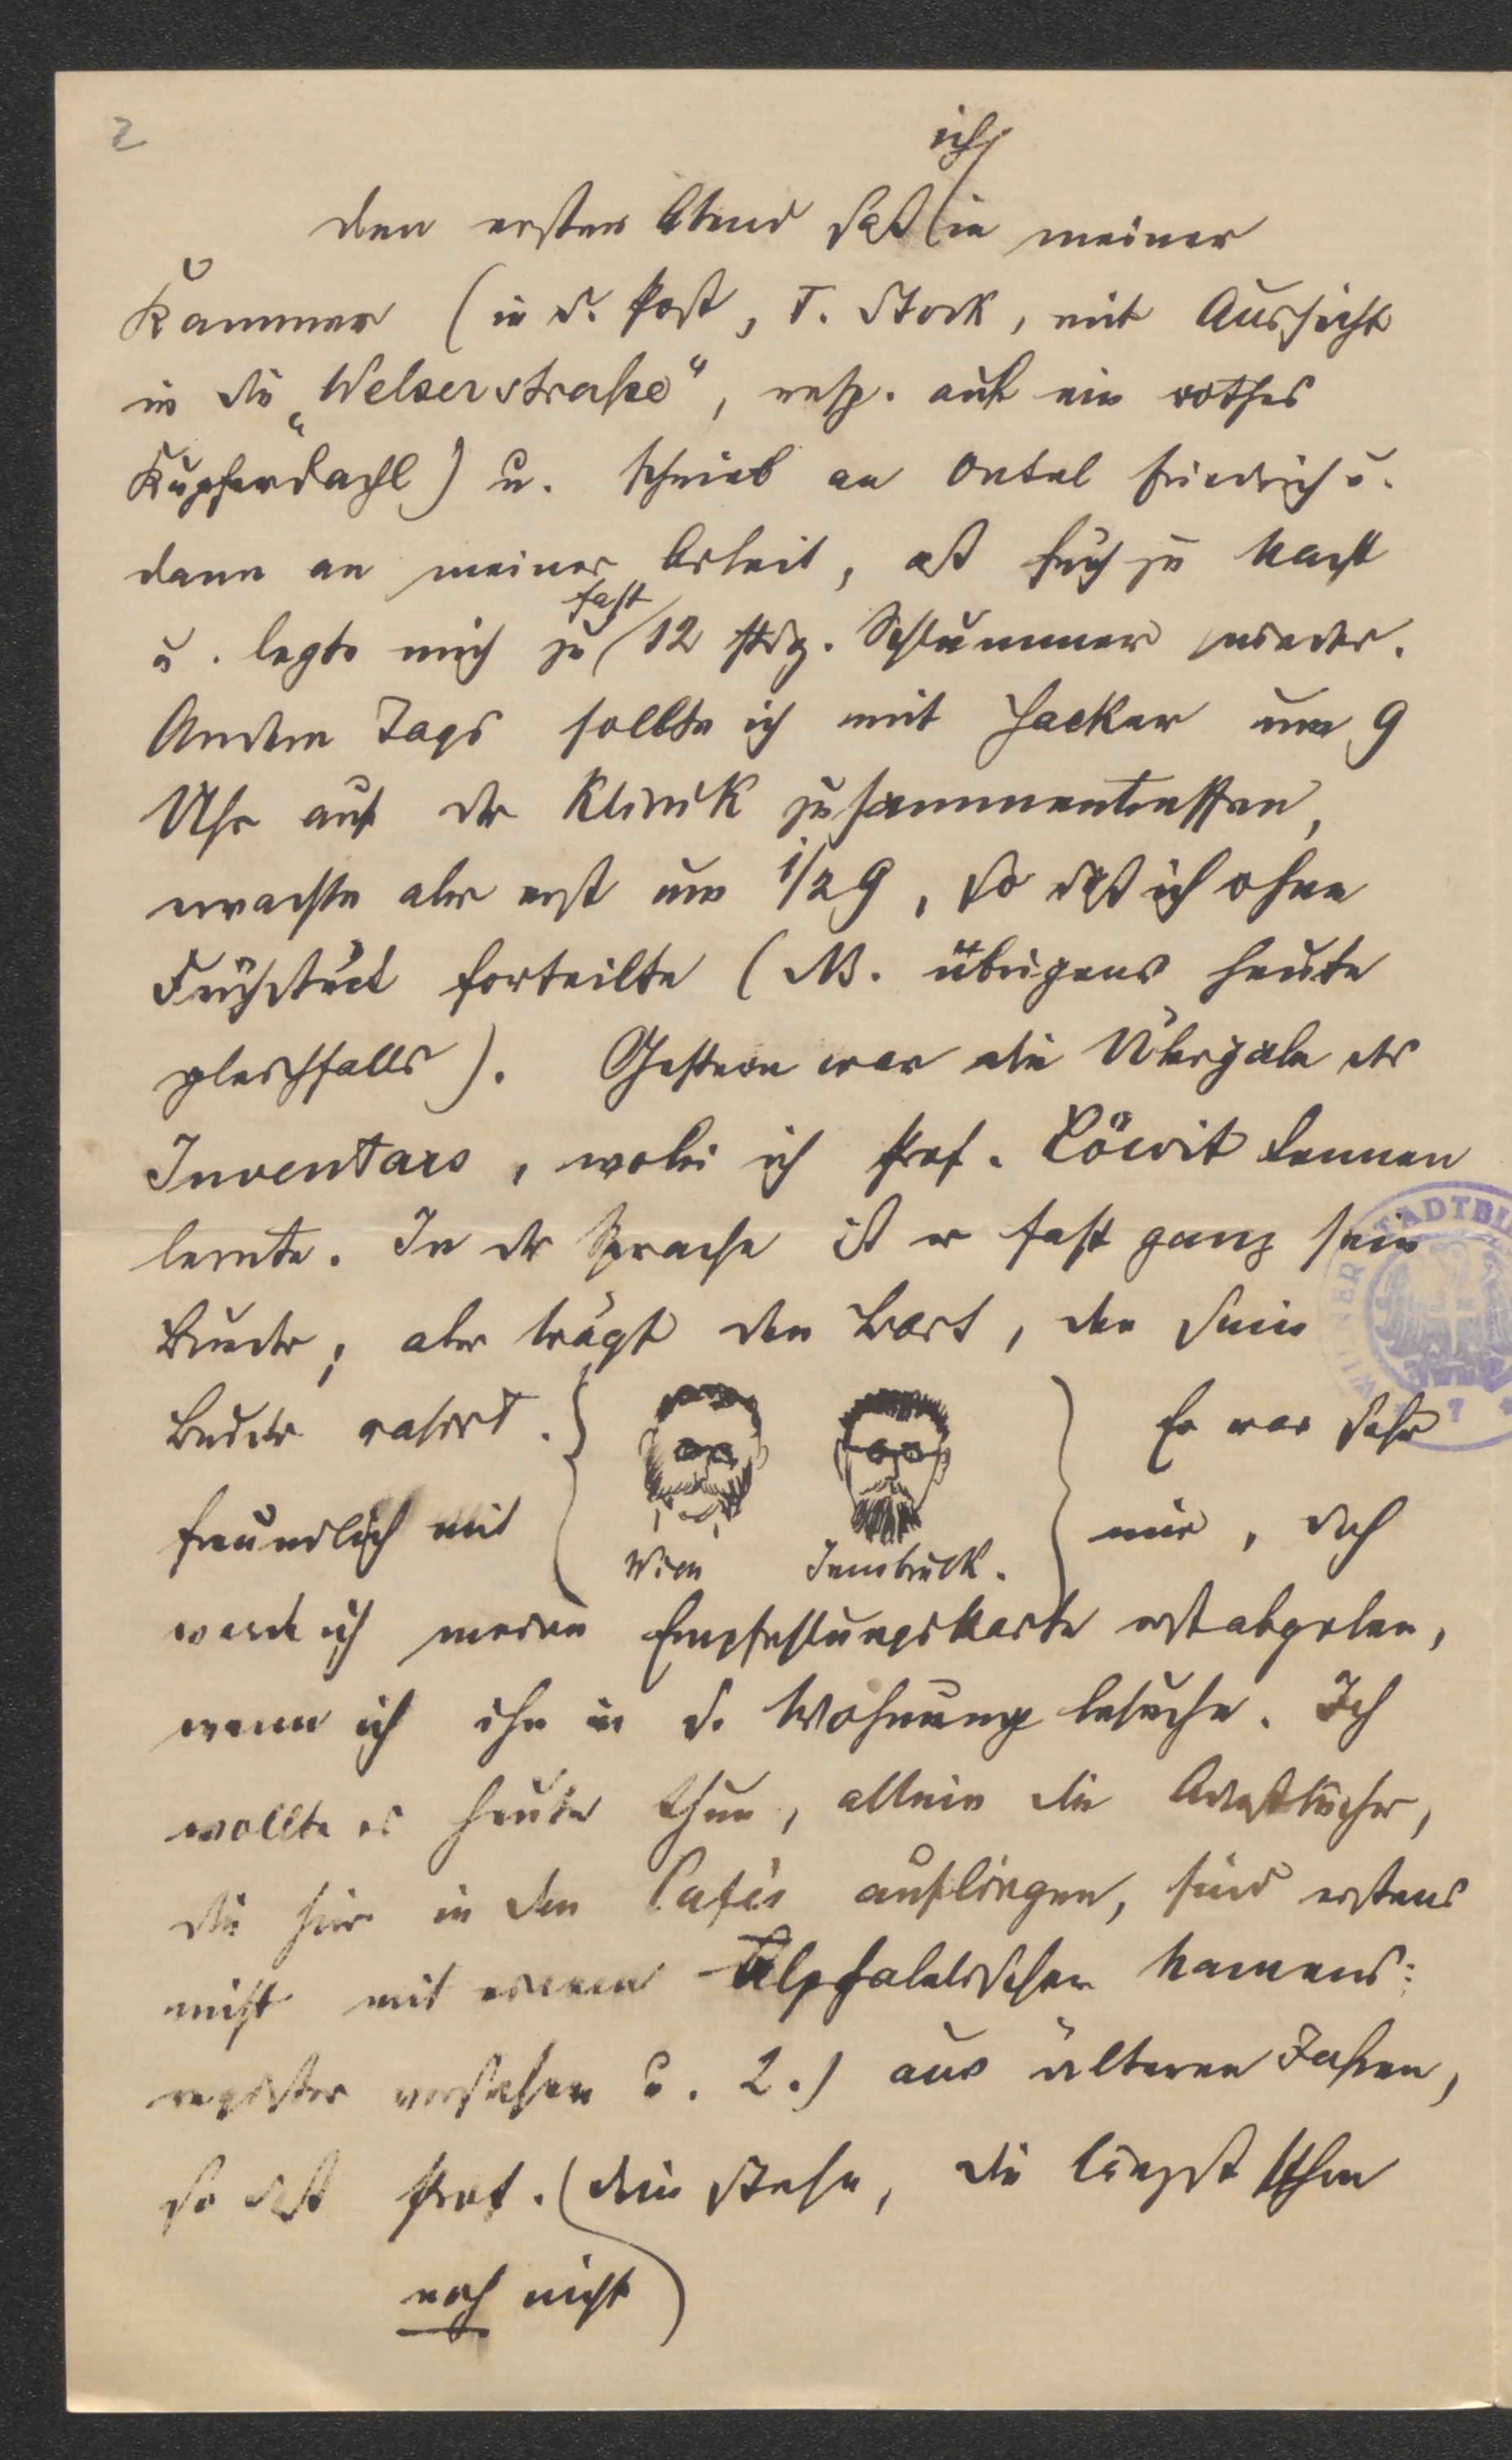 2
ich
Den ersten Abend saß in meiner
Kammer (in d. Post, I. Stock, mit Aussicht
in die „Welserstraße“, resp. auf ein rothes
Kupferdachl) u. schrieb an Onkel Friedrich u.
dann an meiner Arbeit, aß früh zu Nacht
fast
u. legte mich zu 12 stdg. Schlummer nieder.
Andern Tags sollte ich mit Hacker um 9
Uhr auf der Klinik zusammentreffen,
erwachte aber erst um 1/2 9, so daß ich ohne
Frühstück forteilte (NB. übrigens heute
gleichfalls). Gestern war die Übergabe des
Inventars, wobei ich Prof. Löwit kennen
lernte. In der Sprache ist er fast ganz sein
Bruder, aber trägt den Bart, den sein
Bruder rasirt. Er war sehr
freundlich mit mir, doch
Wien Innsbruck.
werde ich meine Empfehlungskarte erst abgeben,
wenn ich ihn in d. Wohnung besuche. Ich
wollte es heute thun, allein die Adreßbücher,
die hier in den Cafés aufliegen, sind erstens
nicht mit einem Alphabetischen Namens-
register versehen u. 2.) aus älteren Jahren,
so daß Prof. drin stehen, die längst
noch nicht
STADTBI
WIENER